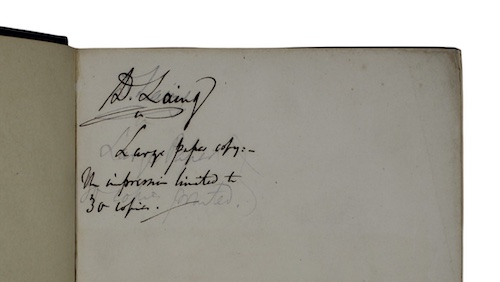 D. Laing
Large paper copy:-
impression limited to
30 copies.